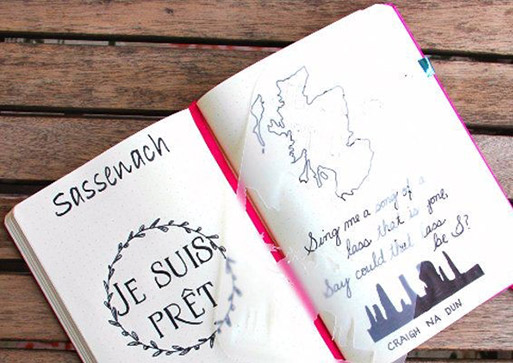 Sassenach
JE SUIS
PRÊT
Sing me a song of a
lass that is gone,
Say could that lass
be S?
CRAIGH NA DUN